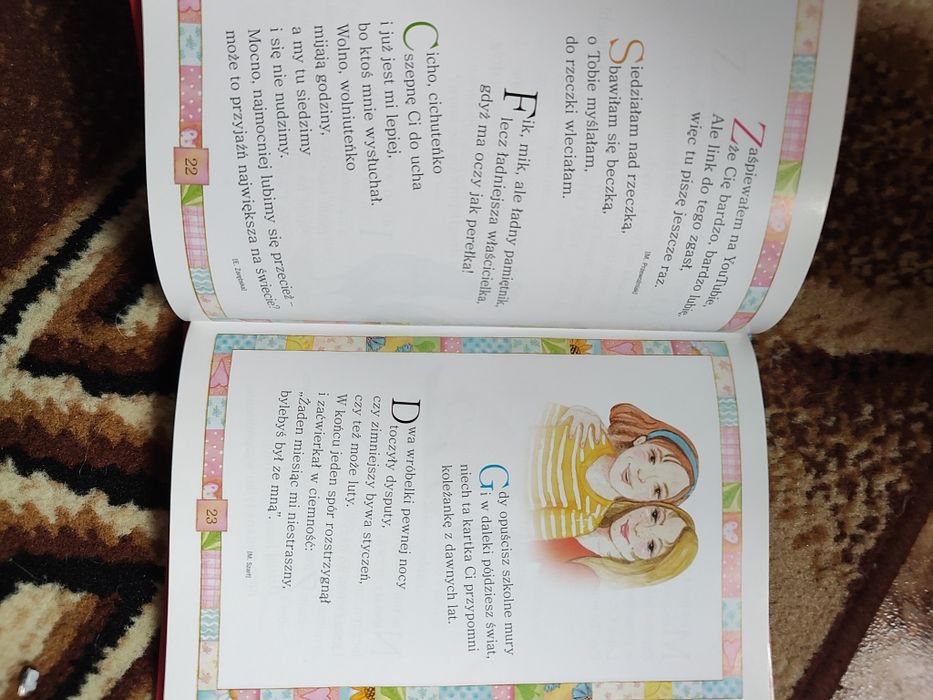 Zaśpiewałem na YouTubie,
że Cię bardzo, bardzo lubię.
Ale link do tego zgasł,
więc tu piszę jeszcze raz.
(M. Przewoźniak)
Siedziałam nad rzeczką,
bawiłam się beczką,
o Tobie myślałam,
do rzeczki wleciałam.
Fik, mik, ale ładny pamiętnik,
lecz ładniejsza właścicielka,
gdyż ma oczy jak perełka!
Cicho, cichuteńko
szepnę Ci do ucha
i już jest mi lepiej,
bo ktoś mnie wysłuchał.
Wolno, wolniuteńko
mijają godziny,
a my tu siedzimy
i się nie nudzimy.
Mocno, najmocniej lubimy się przecież –
może to przyjaźń największa na świecie?
(E. Zarębska)
22
Gdy opuścisz szkolne mury
i w daleki pójdziesz świat,
niech ta kartka Ci przypomni
koleżankę z dawnych lat.
Dwa wróbelki pewnej nocy
toczyły dysputy,
czy zimniejszy bywa styczeń,
czy też może luty.
W końcu jeden spór rozstrzygnął
i zaćwierkał w ciemność:
„Żaden miesiąc mi niestraszny,
bylebyś był ze mną”.
(M. Szarf)
23